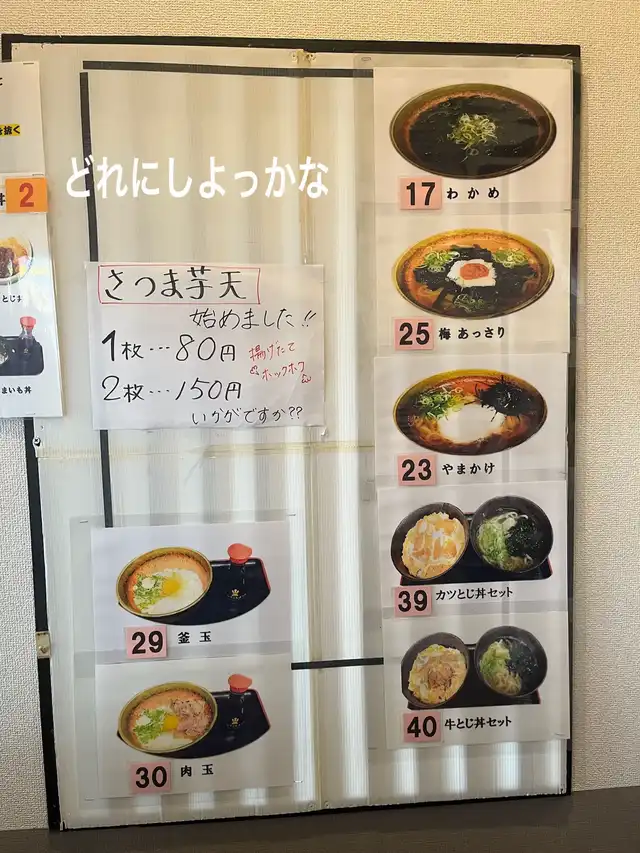 を抜く
2
とじま
まいも丼
どれにしよっかな
さつま芋天
始めました!!
1枚…80円
揚げたて
ホックホク
2枚…150円
いかがですか??
29 釜玉
30 肉玉
17 わかめ
25 梅 あっさり
23 やまかけ
39 カツとじ丼セット
40 牛とじ丼セット